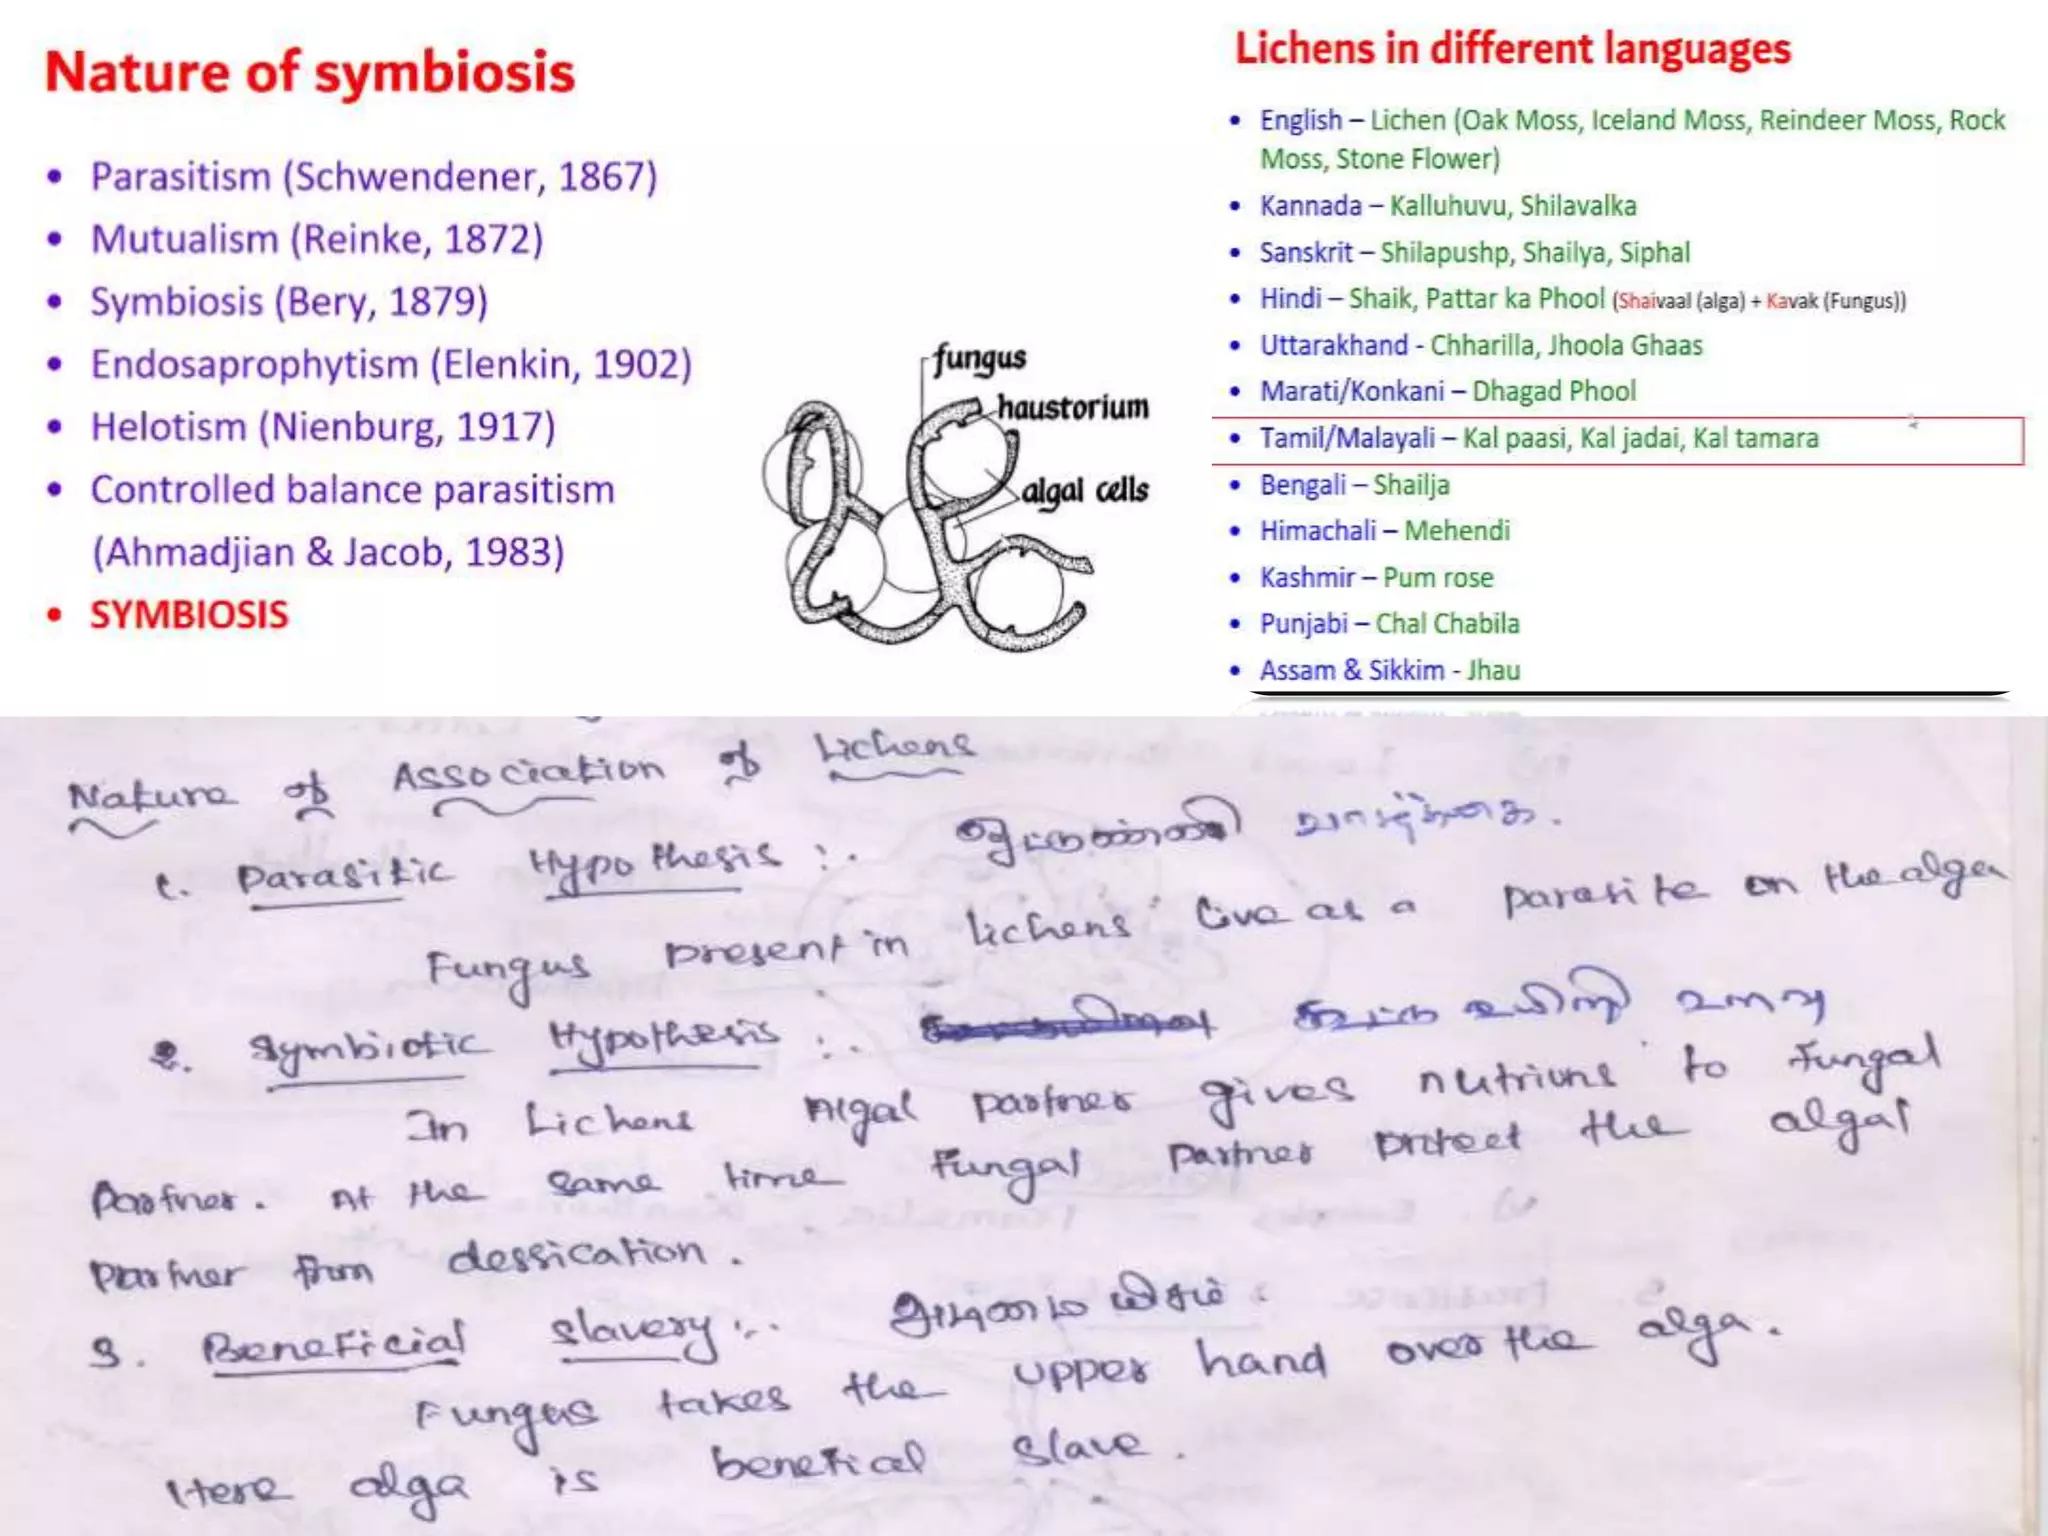 Nature of symbiosis
• Parasitism (Schwendener, 1867)
• Mutualism (Reinke, 1872)
• Symbiosis (Bery, 1879)
• Endosaprophytism (Elenkin, 1902)
• Helotism (Nienburg, 1917)
• Controlled balance parasitism
(Ahmadjian & Jacob, 1983)
• SYMBIOSIS
fungus
haustorium
algal cells
Lichens in different languages
• English – Lichen (Oak Moss, Iceland Moss, Reindeer Moss, Rock
Moss, Stone Flower)
• Kannada – Kalluhuvu, Shilavalka
• Sanskrit – Shilapushp, Shailya, Siphal
• Hindi – Shaik, Pattar ka Phool (Shaivaal (alga) + Kavak (Fungus))
• Uttarakhand - Chharilla, Jhoola Ghaas
• Marati/Konkani – Dhagad Phool
• Tamil/Malayali – Kal paasi, Kal jadai, Kal tamara
• Bengali – Shailja
• Himachali – Mehendi
• Kashmir – Pum rose
• Punjabi – Chal Chabila
• Assam & Sikkim - Jhau
Nature of Association of Lichens
1. Parasitic Hypothesis :. ஒட்டுண்ணி வாழ்க்கை.
Fungus present in lichens live as a parasite on the algae
2. Symbiotic Hypothesis :. கூட்டு உயிரி உறவு
In Lichens Algal partner gives nutriuns to Fungal
partner. At the same time Fungal partner protect the algal
partner from dessication.
3. Beneficial slavery :. அடிமை
Fungus takes the upper hand over the alga.
Here alga is benefical slave.